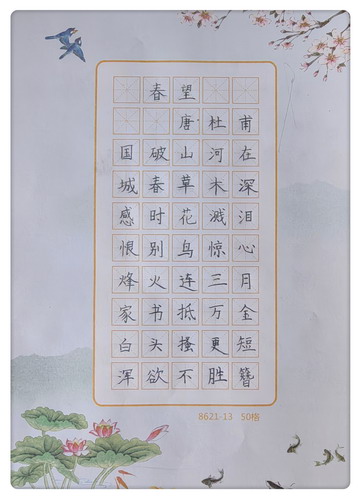 春望
唐·杜甫
国破山河在
城春草木深
感时花溅泪
恨别鸟惊心
烽火连三月
家书抵万金
白头搔更短
浑欲不胜簪
8621-13 50格